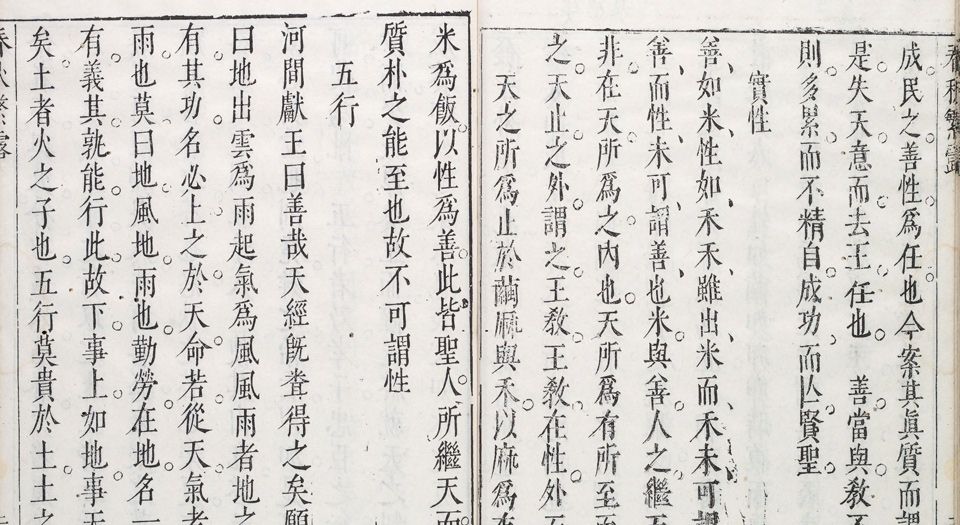 春秋繁露
成民之善性爲任也今案其眞質而謂
是失天意而去王任也 善當與教不
則多累而不精自成功而亾賢聖
實性
善如米性如禾禾雖出米而禾未可謂
善而性未可謂善也米與善人之繼天
非在天所爲之內也天所爲有所至
之天止之外謂之王教王教在性外
天之所爲止於繭麻與禾以麻爲布
米爲飯以性爲善此皆聖人所繼天而
質朴之能至也故不可謂性
五行
河間獻王曰善哉天經旣聋得之矣願
曰地出雲爲雨起氣爲風風雨者地之
有其功名必上之於天命若從天氣者
雨也莫曰地風地雨也勤勞在地名一
有義其孰能行此故下事上如地事天
矣土者火之子也五行莫貴於土土之
春秋繁露